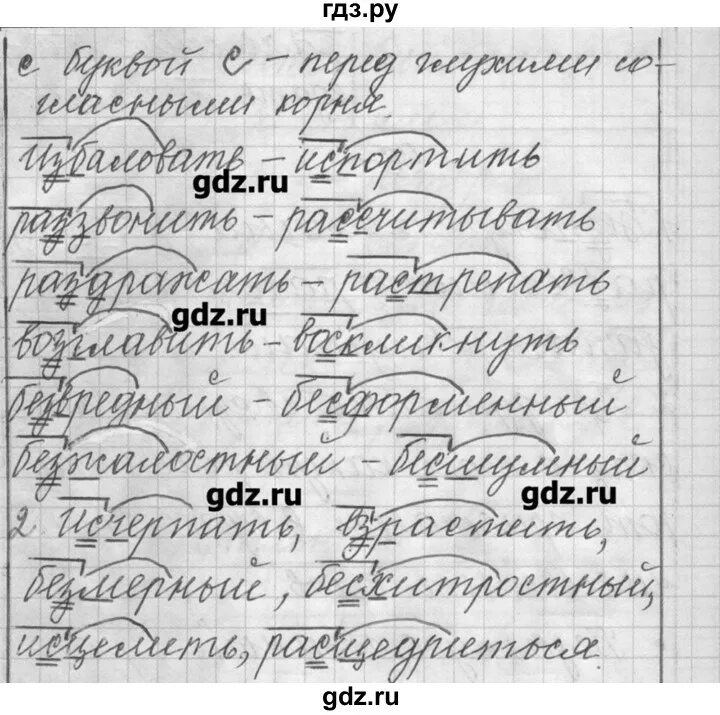 гдз.ру
с буквой с – перед глухими со-
гласными корня.
избаловать – испортить
gdz.ru
раззвонить – рассчитывать
раздражать – растрепать
gdz.ru
возглавить – воскликнуть
безвредный – бесформенный
безжалостный – бесшумный
gdz.ru gdz.ru
2. Исчерпать, взрастить,
безмерный, бесхитростный,
исцелить, расщедриться.
gdz.ru